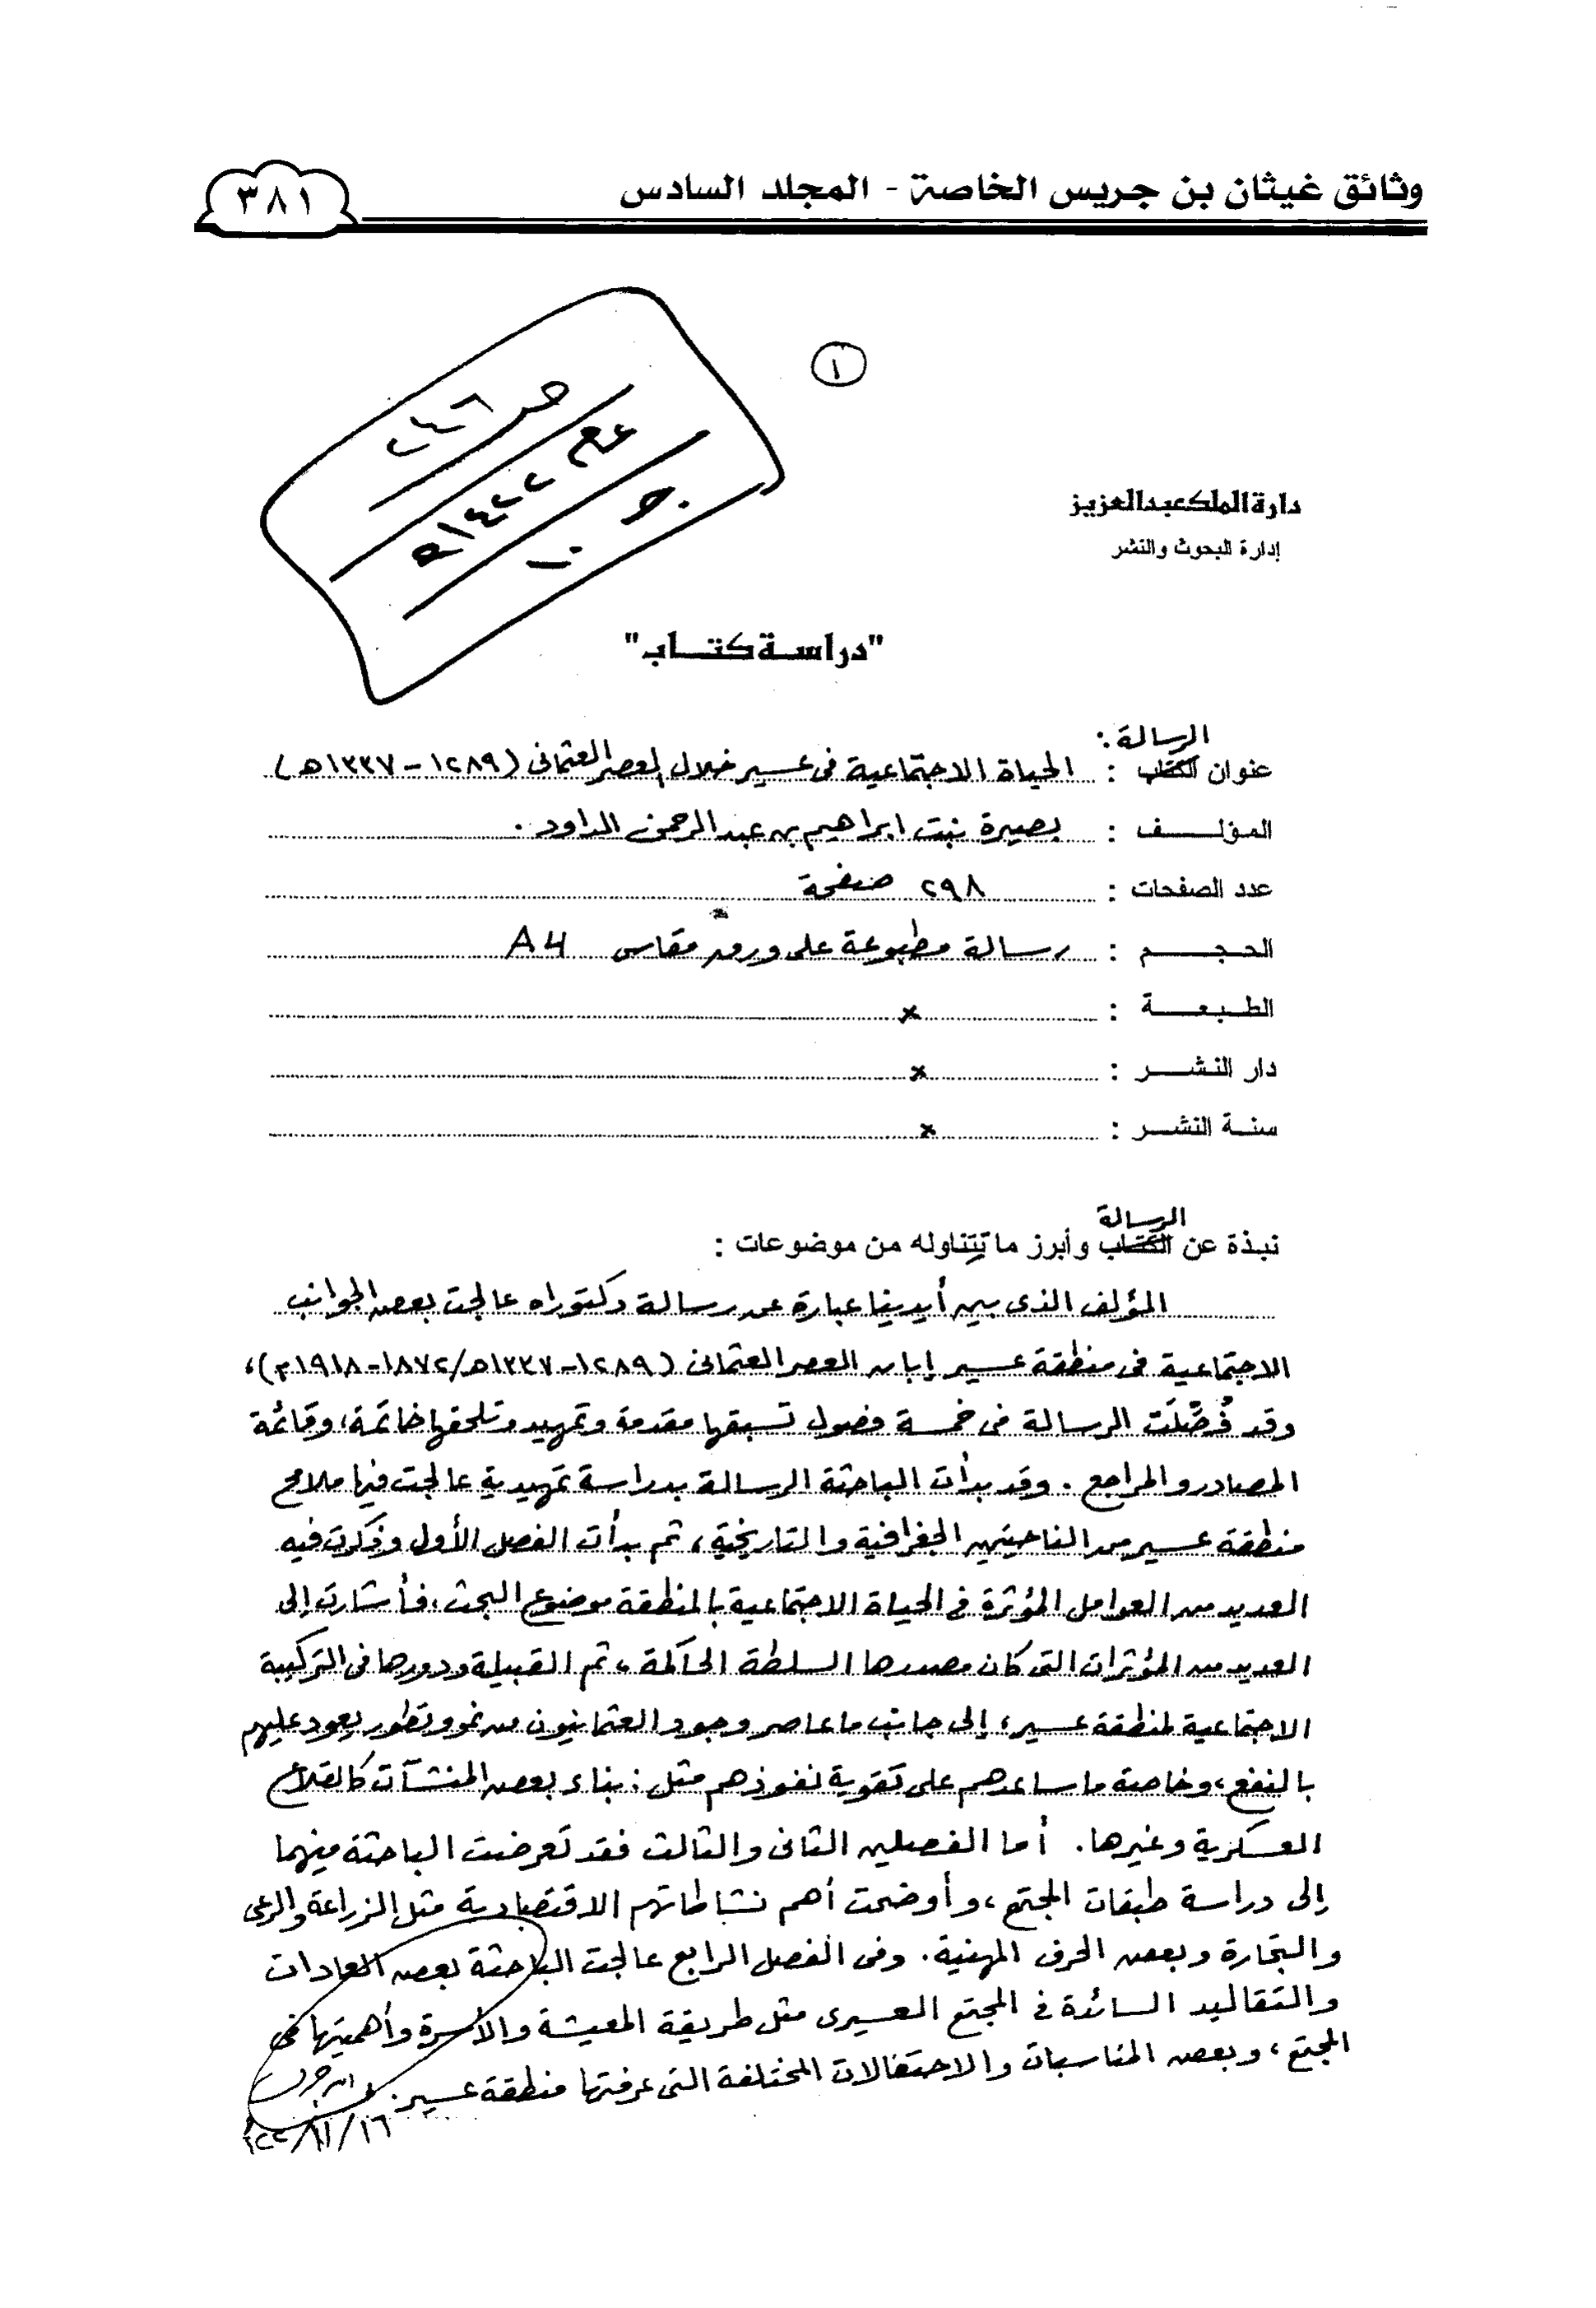 وثائق غيثان بن جريس الخاصة - المجلد السادس
٣٨١
١
ص ٢٤٦
عع
١٤٢٢هـ
دارة الملك عبدالعزيز
إدارة البحوث والنشر
"دراسة كتاب"
الرسالة:
عنوان الكتاب : الحياة الاجتماعية فى عسير خلال العصر العثمانى (١٢٨٩ - ١٣٣٧هـ)
المؤلف : بصيرة بنت ابراهيم بن عبدالرحمن الداود.
عدد الصفحات : ٢٩٨ صفحة
الحجم : رسالة مطبوعة على ورق مقاس A4
الطبعة : ×
دار النشر : ×
سنة النشر : ×
الرسالة
نبذة عن الكتاب وأبرز ما تتناوله من موضوعات :
المؤلف الذى بين أيدينا عبارة عن رسالة دكتوراه عالجت بعض الجوانب
الاجتماعية فى منطقة عسير إبان العصر العثمانى (١٢٨٩-١٣٣٧هـ/١٨٧٢-١٩١٨م)،
وقد فُصِّلَت الرسالة فى خمسة فصول تسبقها مقدمة وتمهيد وتلحقها خاتمة، وقائمة
المصادر والمراجع. وقد بدأت الباحثة الرسالة بدراسة تمهيدية عالجت فيها ملامح
منطقة عسير من الناحيتين الجغرافية والتاريخية، ثم بدأت الفصل الأول وذكرت فيه
العديد من العوامل المؤثرة فى الحياة الاجتماعية بالمنطقة موضوع البحث، فأشارت إلى
العديد من المؤثرات التى كان مصدرها السلطة الحاكمة، ثم القبيلة ودورها فى التركيبة
الاجتماعية لمنطقة عسير، إلى جانب ما عاصر وجود العثمانيون من نمو وتطور يعود عليهم
بالنفع، وخاصة ما ساعدهم على تقوية نفوذهم مثل: بناء بعض المنشآت كالقلاع
العسكرية وغيرها. أما الفصلين الثانى والثالث فقد تعرضت الباحثة فيهما
إلى دراسة طبقات المجتمع، وأوضحت أهم نشاطاتهم الاقتصادية مثل الزراعة والرعى
والتجارة وبعض الحرف المهنية. وفى الفصل الرابع عالجت الباحثة بعض العادات
والتقاليد السائدة فى المجتمع العسيرى مثل طريقة المعيشة والأسرة وأهميتها فى
المجتمع، وبعض المناسبات والاحتفالات المختلفة التى عرفتها منطقة عسير.